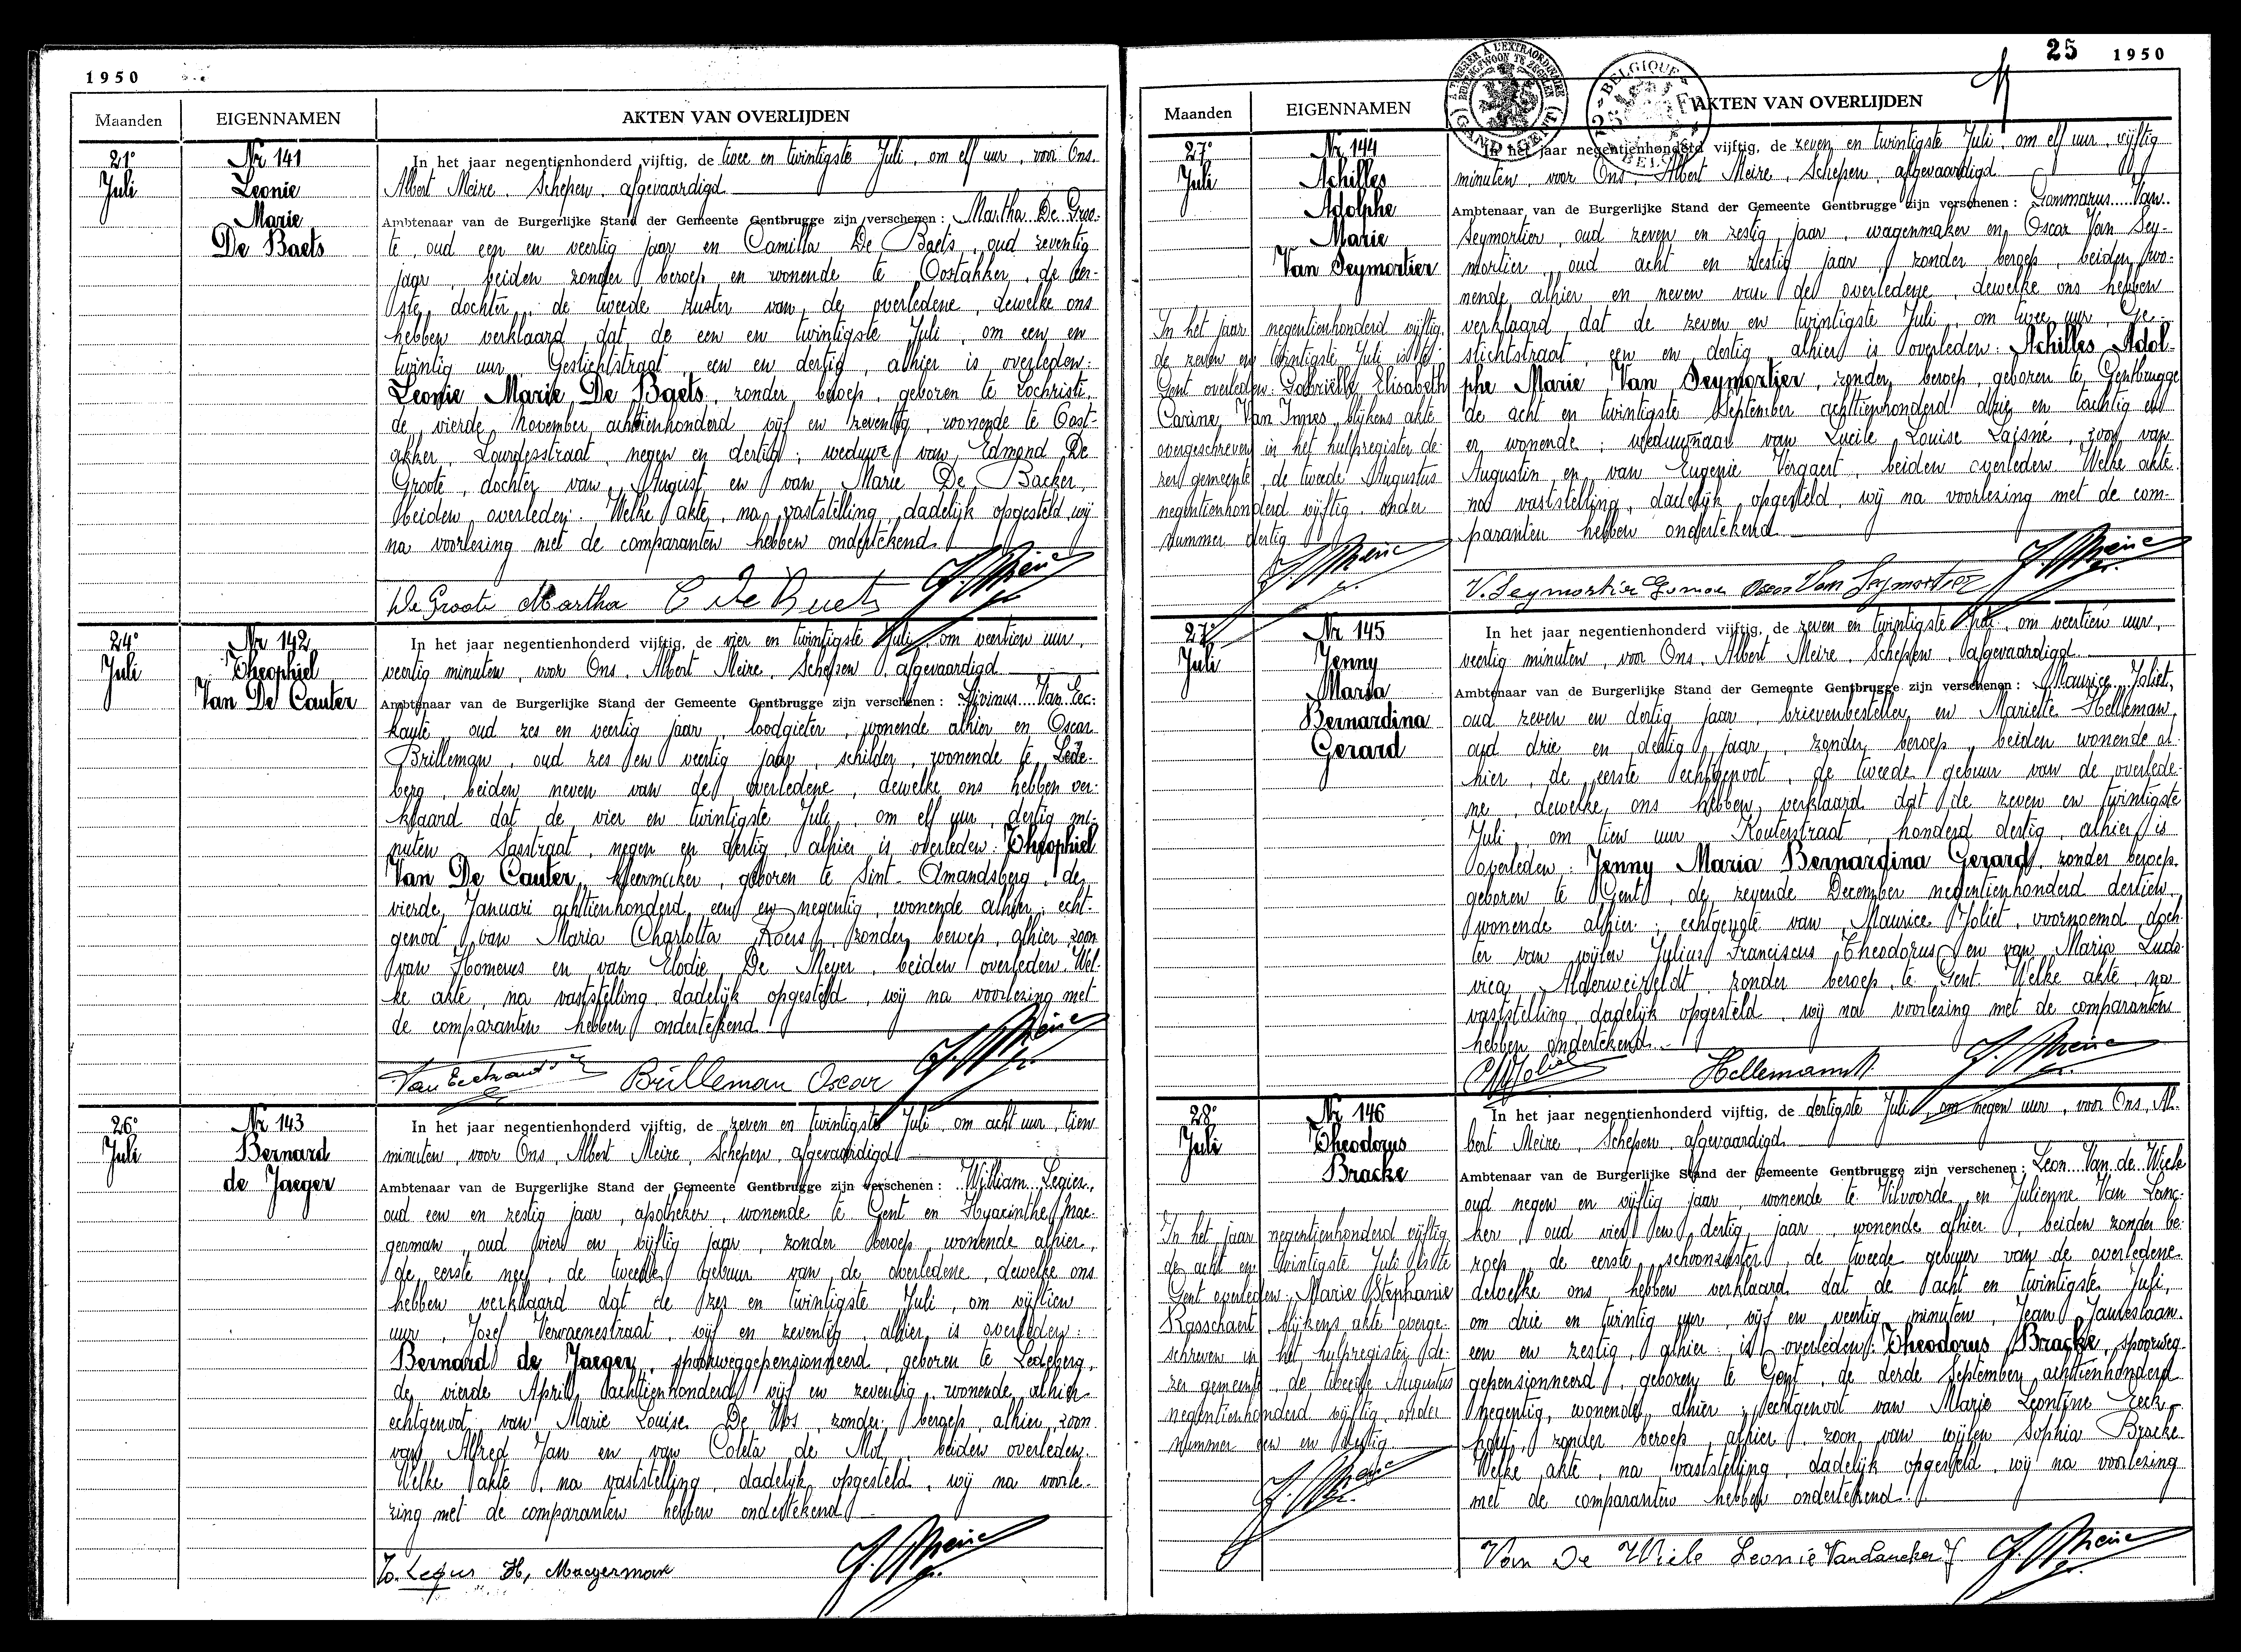 1950
Maanden EIGENNAMEN AKTEN VAN OVERLIJDEN
21e
Juli
Nr 141
Leonie
Marie
De Baets
In het jaar negentienhonderd vijftig, de twee en twintigste Juli, om elf uur, voor Ons.
Albert Meire, Schepen, afgevaardigd
Ambtenaar van de Burgerlijke Stand der Gemeente Gentbrugge zijn verschenen: Martha De Groo-
te, oud een en veertig jaar en Camilla De Baets, oud zeventig
jaar, beiden zonder beroep en wonende te Oostakker, de eer-
ste dochter, de tweede zuster van de overledene, dewelke ons
hebben verklaard dat de een en twintigste Juli, om een en
twintig uur, Gestichtstraat, een en dertig, alhier is overleden:
Leonie Marie De Baets, zonder beroep, geboren te Lochristi,
de vierde November achttienhonderd vijf en zeventig, wonende te Oost-
akker, Lourdesstraat, negen en dertig; weduwe van Edmond De
Groote, dochter van August en van Marie De Backer,
beiden overleden. Welke akte, na vaststelling, dadelijk opgesteld, wij
na voorlezing met de comparanten hebben ondertekend.
De Groote Martha C De Baets A. Meire
24e
Juli
Nr 142
Theophiel
Van De Cauter
In het jaar negentienhonderd vijftig, de vier en twintigste Juli, om veertien uur,
veertig minuten, voor Ons, Albert Meire, Schepen, afgevaardigd
Ambtenaar van de Burgerlijke Stand der Gemeente Gentbrugge zijn verschenen: Livinus Van Eec-
kaute, oud zes en veertig jaar, loodgieter, wonende alhier en Oscar
Brilleman, oud zes en veertig jaar, schilder, wonende te Lede-
berg, beiden neven van de overledene, dewelke ons hebben ver-
klaard dat de vier en twintigste Juli, om elf uur, dertig mi-
nuten, Sasstraat, negen en dertig, alhier is overleden: Theophiel
Van De Cauter, kleermaker, geboren te Sint-Amandsberg, de
vierde Januari achttienhonderd een en negentig, wonende alhier; echt-
genoot van Maria Charlotta Roers, zonder beroep, alhier, zoon
van Homerus en van Elodie De Meyer, beiden overleden. Wel-
ke akte, na vaststelling, dadelijk opgesteld, wij na voorlezing met
de comparanten hebben ondertekend.
Brilleman Oscar A. Meire
26e
Juli
Nr 143
Bernard
de Jaeger
In het jaar negentienhonderd vijftig, de zeven en twintigste Juli, om acht uur, tien
minuten, voor Ons, Albert Meire, Schepen, afgevaardigd
Ambtenaar van de Burgerlijke Stand der Gemeente Gentbrugge zijn verschenen: William Legier,
oud een en zestig jaar, apotheker, wonende te Gent en Hyacinthe Mae-
german, oud vier en vijftig jaar, zonder beroep, wonende alhier,
de eerste neef, de tweede gebuur van de overledene, dewelke ons
hebben verklaard dat de zes en twintigste Juli, om vijftien
uur, Jozef Vervaenestraat, vijf en zeventig, alhier is overleden:
Bernard de Jaeger, spoorweggepensionneerd, geboren te Ledeberg,
de vierde April achttienhonderd vijf en zeventig, wonende alhier
echtgenoot van Marie Louise De Vos, zonder beroep, alhier, zoon
van Alfred Jan en van Coleta de Mol, beiden overleden.
Welke akte, na vaststelling, dadelijk opgesteld, wij na voorle-
zing met de comparanten hebben ondertekend
H, Maegerman A. Meire
25 1950
Maanden EIGENNAMEN AKTEN VAN OVERLIJDEN
A TIMBRER A L'EXTRAORDINAIRE
BUITENGEWOON TE ZEGELEN
GAND GENT
BELGIQUE
BELGIË
27e
Juli
Nr 144
Achilles
Adolphe
Marie
Van Seymortier
In het jaar negentienhonderd vijftig
de zeven en twintigste Juli is te
Gent overleden: Gabrielle Elisabeth
Carine Van Imnes, blijkens akte
overgeschreven in het hulpregister de-
zer gemeente, de tweede Augustus
negentienhonderd vijftig, onder
nummer dertig.
A. Meire
In het jaar negentienhonderd vijftig, de zeven en twintigste Juli, om elf uur, vijftig
minuten, voor Ons, Albert Meire, Schepen, afgevaardigd
Ambtenaar van de Burgerlijke Stand der Gemeente Gentbrugge zijn verschenen: Gommarus Van
Seymortier, oud zeven en zestig jaar, wagenmaker en Oscar Van Sey-
mortier, oud acht en zestig jaar, zonder beroep, beiden wo-
nende alhier en neven van de overledene, dewelke ons hebben
verklaard dat de zeven en twintigste Juli, om twee uur, Ge-
stichtstraat, een en dertig, alhier is overleden: Achilles Adol-
phe Marie Van Seymortier, zonder beroep, geboren te Gentbrugge
de acht en twintigste September achttienhonderd drie en tachtig en
er wonende; weduwnaar van Lucile Louise Laisné, zoon van
Augustin en van Eugenie Vergaert, beiden overleden. Welke akte
na vaststelling, dadelijk opgesteld, wij na voorlezing met de com-
paranten hebben ondertekend
V. Seymortier Oscar Van Seymortier A. Meire
27e
Juli
Nr 145
Jenny
Maria
Bernardina
Gerard
In het jaar negentienhonderd vijftig, de zeven en twintigste Juli, om veertien uur,
veertig minuten, voor Ons, Albert Meire, Schepen, afgevaardigd
Ambtenaar van de Burgerlijke Stand der Gemeente Gentbrugge zijn verschenen: Maurice Joliet,
oud zeven en dertig jaar, brievenbesteller en Mariette Helleman,
oud drie en dertig jaar, zonder beroep, beiden wonende al-
hier, de eerste echtgenoot, de tweede gebuur van de overlede-
ne, dewelke ons hebben verklaard dat de zeven en twintigste
Juli, om tien uur, Kouterstraat, honderd dertig, alhier is
overleden: Jenny Maria Bernardina Gerard, zonder beroep,
geboren te Gent, de zevende December negentienhonderd dertien,
wonende alhier; echtgenote van Maurice Joliet, voornoemd doch-
ter van wijlen Julius Franciscus Theodorus en van Maria Ludo-
vica Alderweireldt, zonder beroep, te Gent. Welke akte, na
vaststelling, dadelijk opgesteld, wij na voorlezing met de comparanten
hebben ondertekend.
A. Meire
28e
Juli
Nr 146
Theodorus
Bracke
In het jaar negentienhonderd vijftig
de acht en twintigste Juli is te
Gent overleden: Marie Stephanie
Rasschaert, blijkens akte overge-
schreven in het hulpregister de-
zer gemeente, de tweede Augustus
negentienhonderd vijftig, onder
nummer een en dertig.
A. Meire
In het jaar negentienhonderd vijftig, de dertigste Juli, om negen uur, voor Ons, Al-
bert Meire, Schepen, afgevaardigd
Ambtenaar van de Burgerlijke Stand der Gemeente Gentbrugge zijn verschenen: Leon. Van de Wiele
oud negen en vijftig jaar, wonende te Vilvoorde en Julienne Van Lanc-
ker, oud vier en dertig jaar, wonende alhier, beiden zonder be-
roep, de eerste schoonzuster, de tweede gebuur van de overledene
dewelke ons hebben verklaard dat de acht en twintigste Juli,
om drie en twintig uur, vijf en veertig minuten, Jean Jaureslaan,
een en zestig, alhier is overleden: Theodorus Bracke, spoorweg-
gepensionneerd, geboren te Gent, de derde September achttienhonderd
negentig, wonende alhier; echtgenoot van Marie Leontine Eeck-
hout, zonder beroep, alhier, zoon van wijlen Sophia Bracke
Welke akte, na vaststelling, dadelijk opgesteld, wij na voorlezing
met de comparanten hebben ondertekend
Van De Wiele Leonie VanLancker J A. Meire